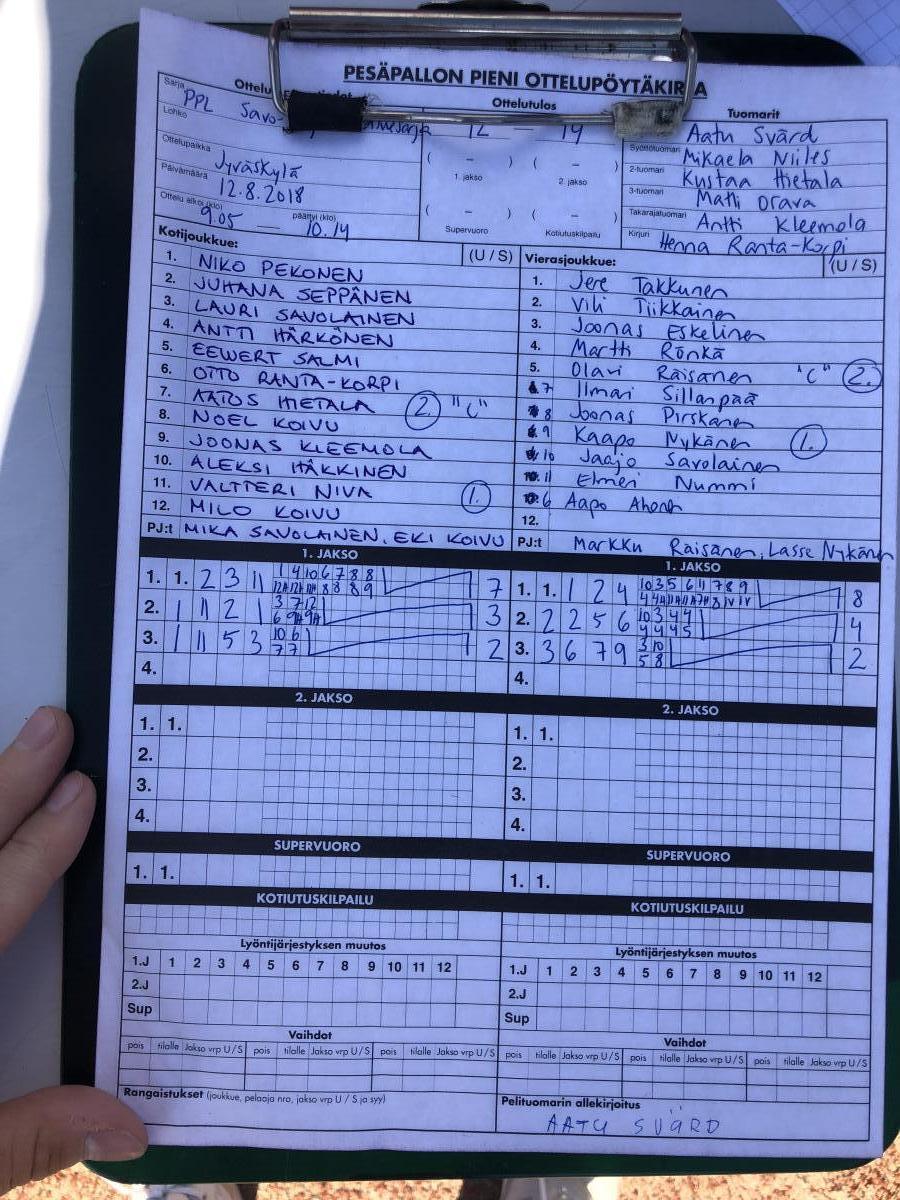 PESÄPALLON PIENI OTTELUPÖYTÄKIRJA
Ottelutulos
12 — 14
( – ) ( – )
1. jakso 2. jakso
( – ) ( – )
Supervuoro Kotiutuskilpailu
Sarja PPL Savo-
Lohko
Ottelupaikka Jyväskylä
Päivämäärä 12.8.2018
Ottelu alkoi (klo) 9.05 — päättyi (klo) 10.14
Tuomarit
Aatu Svärd
Syöttötuomari Mikaela Niiles
2-tuomari Kustaa Hietala
3-tuomari Matti Orava
Takarajatuomari Antti Kleemola
Kirjuri Henna Ranta-Korpi
Kotijoukkue: (U / S)
1. NIKO PEKONEN
2. JUHANA SEPPÄNEN
3. LAURI SAVOLAINEN
4. ANTTI HÄRKÖNEN
5. EEWERT SALMI
6. OTTO RANTA-KORPI
7. AATOS HIETALA 2. "C"
8. NOEL KOIVU
9. JOONAS KLEEMOLA
10. ALEKSI HÄKKINEN
11. VALTTERI NIVA 1.
12. MILO KOIVU
PJ:t MIKA SAVOLAINEN, EKI KOIVU
Vierasjoukkue: (U / S)
1. Jere Takkunen
2. Vili Tiikkainen
3. Joonas Eskelinen
4. Martti Rönkä
5. Olavi Räisänen "C" 2.
7 Ilmari Sillanpää
8 Joonas Pirskanen
9 Kaapo Nykänen 1.
10 Jaajo Savolainen
11 Elmeri Nummi
6 Aapo Ahonen
12.
PJ:t Markku Räisänen, Lasse Nykänen
1. JAKSO
1. 1. 2 3 11 1 4 10 6 7 8 8 7
2. 1 11 2 1 3 7 12 3
3. 1 11 5 3 10 6 2
7 7
4.
1. JAKSO
1. 1. 1 2 4 10 3 5 6 11 7 8 9 8
2. 2 2 5 6 10 3 4 4 4
4 4 4 5
3. 3 6 7 9 3 10 2
5 8
4.
2. JAKSO
1. 1.
2.
3.
4.
2. JAKSO
1. 1.
2.
3.
4.
SUPERVUORO
1. 1.
SUPERVUORO
1. 1.
KOTIUTUSKILPAILU
KOTIUTUSKILPAILU
Lyöntijärjestyksen muutos
1.J 1 2 3 4 5 6 7 8 9 10 11 12
2.J
Sup
Lyöntijärjestyksen muutos
1.J 1 2 3 4 5 6 7 8 9 10 11 12
2.J
Sup
Vaihdot
pois tilalle Jakso vrp U / S pois tilalle Jakso vrp U / S pois tilalle Jakso vrp U / S
Vaihdot
pois tilalle Jakso vrp U / S pois tilalle Jakso vrp U / S pois tilalle Jakso vrp U / S
Rangaistukset (joukkue, pelaaja nro, jakso vrp U / S ja syy)
Pelituomarin allekirjoitus
AATU SVÄRD